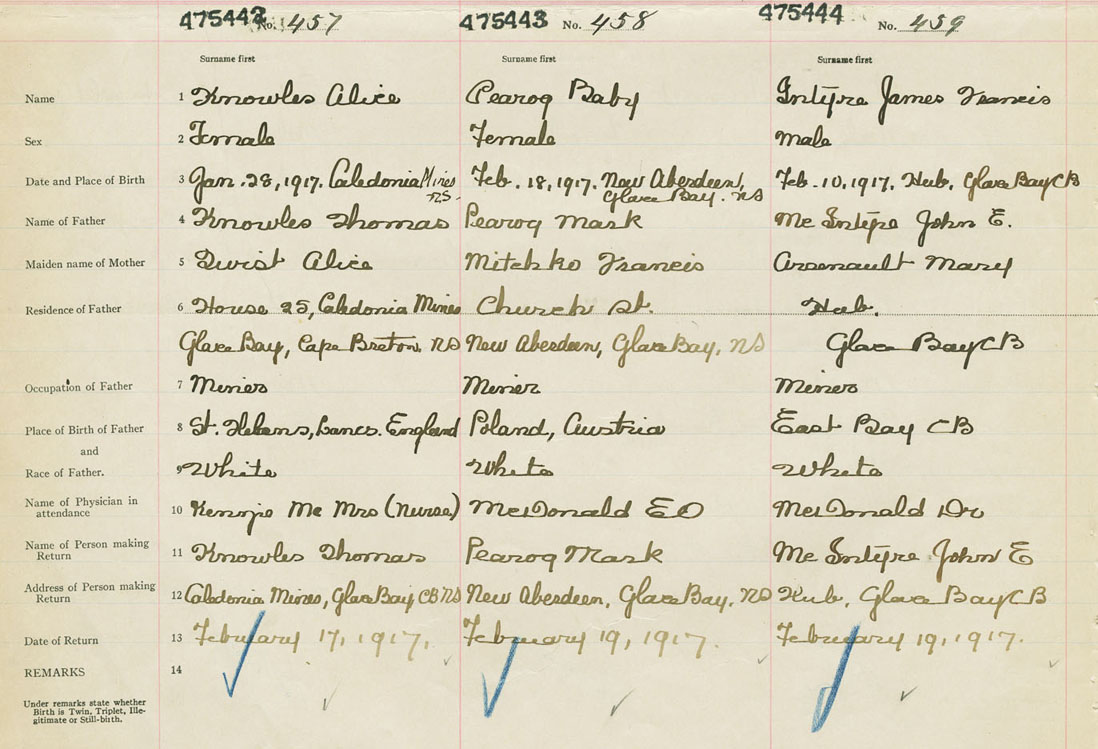 475442 No. 457 475443 No. 458 475444 No. 459
Surname first Surname first Surname first
Name 1 Knowles Alice Pearog Baby Intyre James Francis
Sex 2 Female Female Male
Date and Place of Birth 3 Jan. 28, 1917. Caledonia Mines NS. Feb. 18, 1917. New Aberdeen, Glace Bay. NS Feb. 10, 1917. Hub, Glace Bay CB
Name of Father 4 Knowles Thomas Pearog Mask Mc Intyre John E.
Maiden name of Mother 5 Twist Alice Mitchko Francis Arsenault Mary
Residence of Father 6 House 25, Caledonia Mines Church St. Hub,
Glace Bay, Cape Breton, NS New Aberdeen, Glace Bay, NS Glace Bay CB
Occupation of Father 7 Miner Miner Miner
Place of Birth of Father 8 St. Helens, Lancs. England Poland, Austria East Bay CB
and
Race of Father. 9 White White White
Name of Physician in attendance 10 Kenzie Mc Mrs (Nurse) McDonald EO McDonald Dr
Name of Person making Return 11 Knowles Thomas Pearog Mask Mc Intyre John E
Address of Person making Return 12 Caledonia Mines, Glace Bay CB NS New Aberdeen, Glace Bay, NS Hub, Glace Bay CB
Date of Return 13 February 17, 1917. February 19, 1917. February 19, 1917.
REMARKS 14
Under remarks state whether
Birth is Twin, Triplet, Ille-
gitimate or Still-birth.